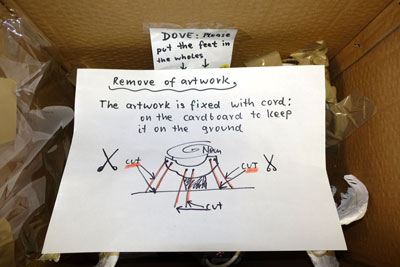 DOVE: Please
put the feet in
the wholes
Remove of artwork
The artwork is fixed with cord:
on the cardboard to keep
it on the ground
Neon
CUT
CUT
CUT